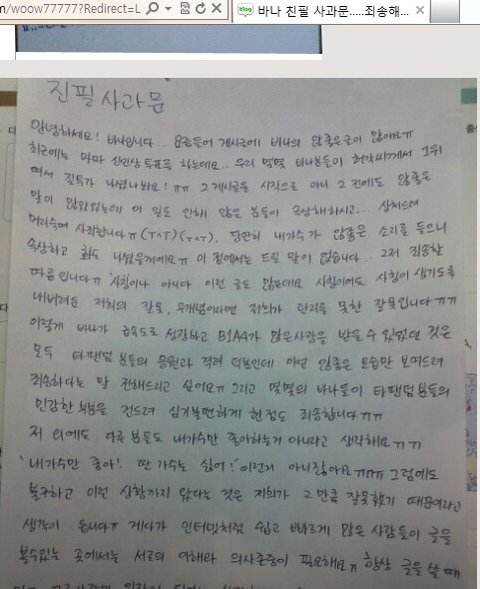 /woow77777?Redirect=L
바나 친필 사과문.....죄송해...
친필사과문
안녕하세요! 바나입니다.. 요즘들어 게시글에 바나의 않좋은글이 많아요ㅠ
최근에는 마마 신인상 투표를 하는데요.. 우리 몇몇 바나분들이 허각씨께서 1위
여서 질투가 나셨나봐요! ㅠㅠ 그 게시글을 시작으로 아니 그 전에도 않좋은
말이 많았었는데 이 일로 인해 많은 분들이 속상해하시고... 상처드려
머리숙여 사죄합니다ㅠ (ㅜㅅㅜ)(ㅜㅅㅜ).. 당연히 내가수가 않좋은 소리를 들으니
속상하고 화도 나셨을거에요ㅠ 이 점에서는 드릴 말이 없습니다.. 그저 죄송할
따름입니다ㅠ 사칭이다 아니다 이런 글도 많은데요 사칭이여도 사칭이 생기도록
내버려둔 저희의 잘못, 무개념이라면 저희가 관리를 못한 잘못입니다ㅠㅠ
이렇게 바나가 급속도로 성장하고 B1A4가 많은사랑을 받을 수 있었던 것은
모두 타팬덤 분들의 응원과 격려 덕분인데 이런 않좋은 모습만 보여드려
죄송하다는 말 전해드리고 싶어요ㅠ 그리고 몇몇의 바나들이 타팬덤분들의
민감한 부분을 건드려 심기불편하게 한점도 죄송합니다ㅠㅠ
저 외에도 다른 분들도 내가수만 좋아하는게 아니라고 생각해요ㅠㅠ
'내가수만 좋아! 딴 가수는 싫어!' 이런게 아니잖아요ㅠㅠㅠ 그럼에도
불구하고 이런 상황까지 왔다는 것은 저희가 그만큼 잘못했기 때문이라고
생각이 듭니다ㅠ 게다가 인터넷처럼 쉽고 빠르게 많은 사람들이 글을
볼수있는 곳에서는 서로의 이해와 의사존중이 필요해요ㅠ 항상 글을 쓸 때